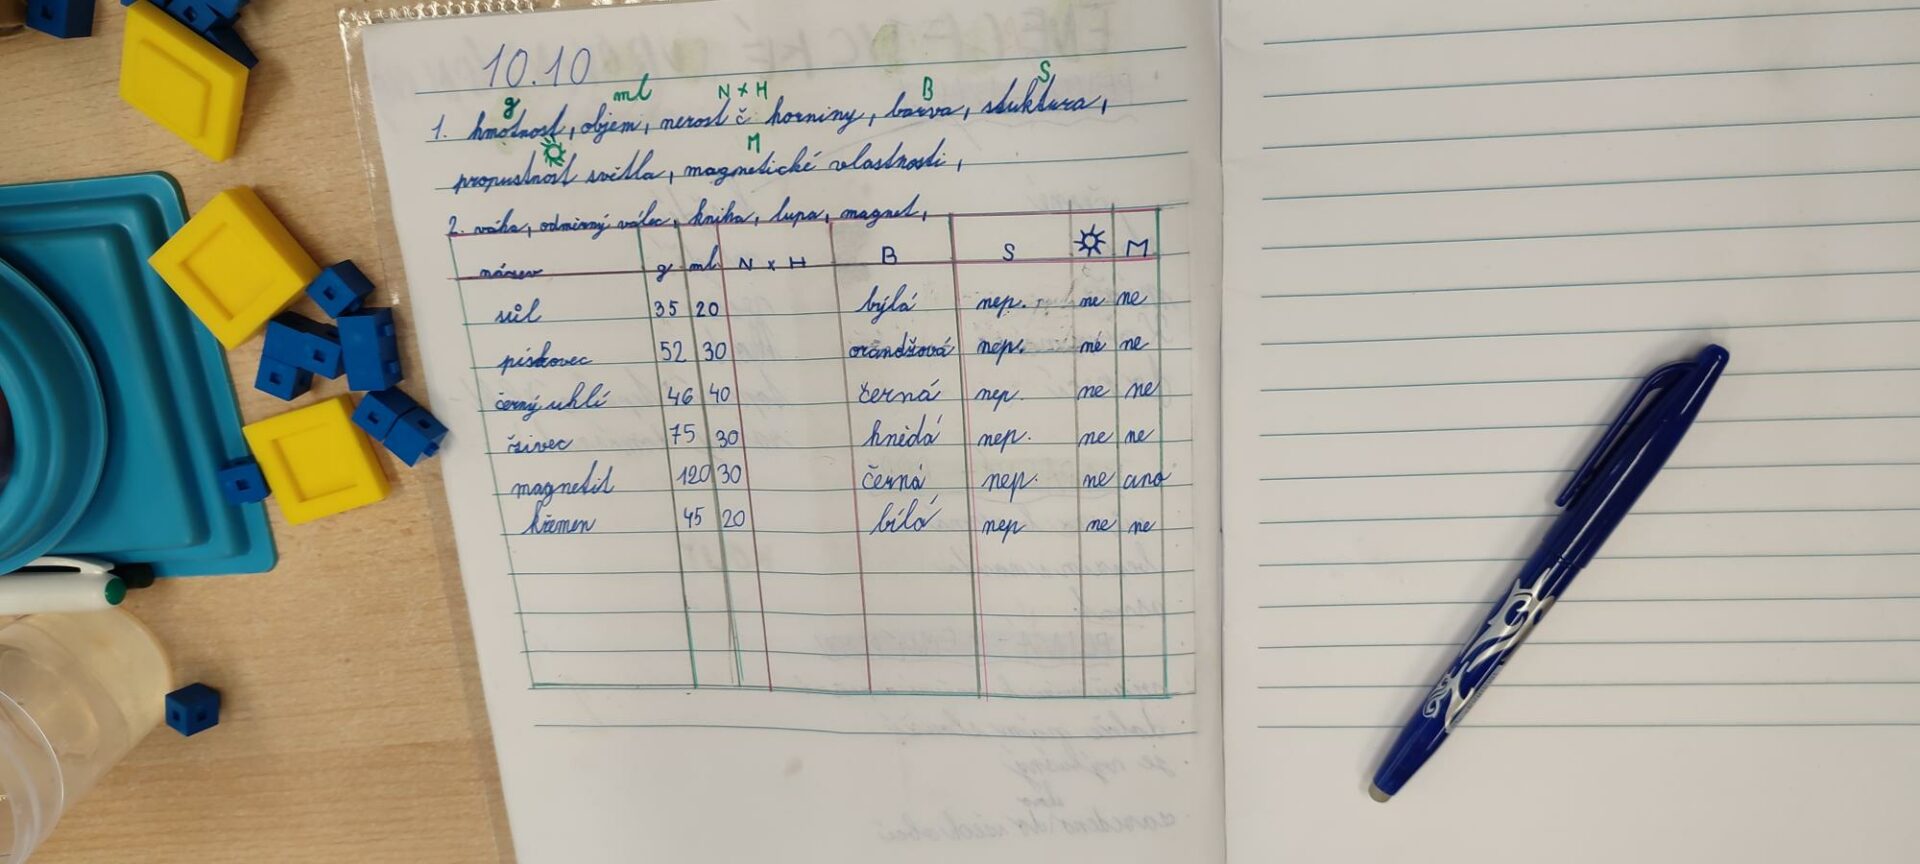 10.10
g ml N x H B S
1. hmotnost, objem, nerost č horniny, barva, stuktura,
M
propustnost světla, magnetické vlastnosti,
2. váha, odměrný válec, kniha, lupa, magnet,
název g ml N x H B S M
sůl 35 20 býlá nep. ne ne
pískovec 52 30 orandžová nep. ne ne
černý uhlí 46 40 černá nep. ne ne
živec 75 30 hnědá nep. ne ne
magnetit 120 30 černá nep. ne ano
křemen 45 20 bílá nep ne ne